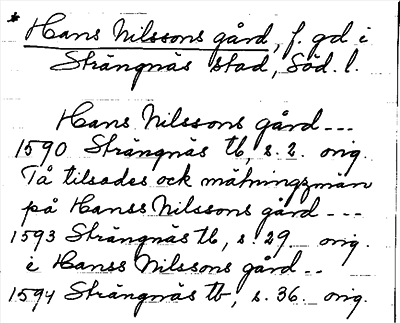 * Hans Nilssons gård, f. gd i
Strängnäs stad, Söd. l.
Hans Nilssons gård ---
1590 Strängnäs tb, s. 2. orig.
Tå tilsades ock mätningzmän
på Hanss Nilssons gård ---
1593 Strängnäs tb, s. 29 orig.
i Hanss Nilssons gård --
1594 Strängnäs tb, s. 36. orig.